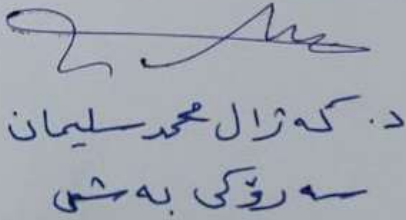 د. كه ژال محمد سليمان
سه رۆكى به شى